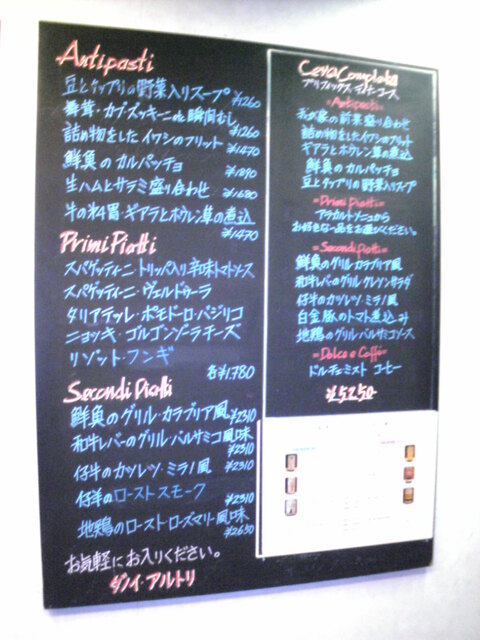 Antipasti
豆とケップリの野菜入りスープ ¥1260
舞茸・カブ・ズッキーニの瞬間むし ¥1260
詰め物をしたイワシのフリット ¥1470
鮮魚のカルパッチョ ¥1890
生ハムとサラミ盛り合わせ ¥1680
牛の第4胃ギアラとホウレン草の煮込 ¥1470
Primi Piatti
スパゲッティーニ・トリッパ入り辛味トマトソース
スパゲッティーニ・ヴェルドゥーラ
タリアテッレ・ポモドーロ・バジリコ
ニョッキ・ゴルゴンゾーラチーズ
リゾット・フンギ
各¥1780
Secondi Piatti
鮮魚のグリル・カラブリア風 ¥2310
和牛レバーのグリル・バルサミコ風味 ¥2310
仔牛のカツレツ・ミラノ風 ¥2310
仔羊のローストスモーク ¥2310
地鶏のロースト・ローズマリー風味 ¥2650
お気軽にお入りください。
ダノイ・アルトリ
Cena Completa
プリフィックス ディナーコース
=Antipasti=
我が家の前菜盛り合わせ
詰め物をしたイワシのフリット
ギアラとホウレン草の煮込
鮮魚のカルパッチョ
豆とケップリの野菜入りスープ
=Primi Piatti=
アラカルトメニューから
お好きな一品をお選びください。
=Secondi Piatti=
鮮魚のグリル・カラブリア風
和牛レバーのグリル・クレソンサラダ
仔牛のカツレツ・ミラノ風
白金豚のトマト煮込み
地鶏のグリル・バルサミコソース
=Dolce e Caffè=
ドルチェミスト コーヒー
¥5250